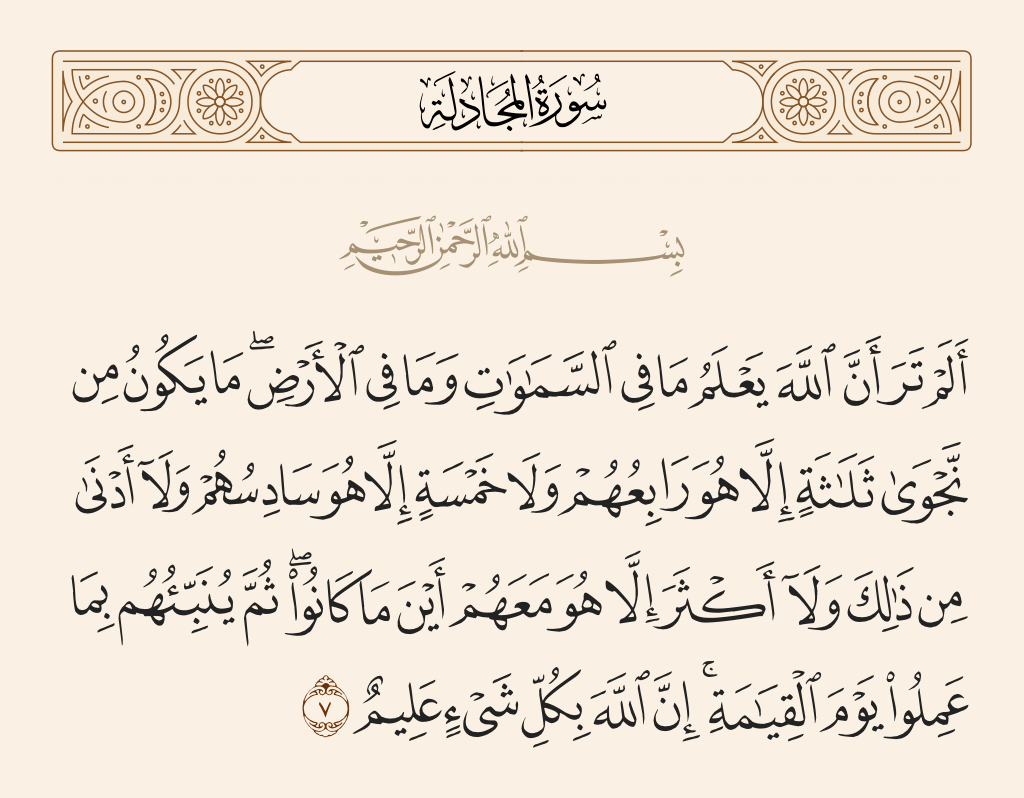 سُورَةُ المُجَادلَةِ
بِسْمِ ٱللَّهِ ٱلرَّحْمَٰنِ ٱلرَّحِيمِ
أَلَمْ تَرَ أَنَّ ٱللَّهَ يَعْلَمُ مَا فِى ٱلسَّمَـٰوَٰتِ وَمَا فِى ٱلْأَرْضِ ۖ مَا يَكُونُ مِن
نَّجْوَىٰ ثَلَـٰثَةٍ إِلَّا هُوَ رَابِعُهُمْ وَلَا خَمْسَةٍ إِلَّا هُوَ سَادِسُهُمْ وَلَآ أَدْنَىٰ
مِن ذَٰلِكَ وَلَآ أَكْثَرَ إِلَّا هُوَ مَعَهُمْ أَيْنَ مَا كَانُوا۟ ۖ ثُمَّ يُنَبِّئُهُم بِمَا
عَمِلُوا۟ يَوْمَ ٱلْقِيَـٰمَةِ ۚ إِنَّ ٱللَّهَ بِكُلِّ شَىْءٍ عَلِيمٌ ٧